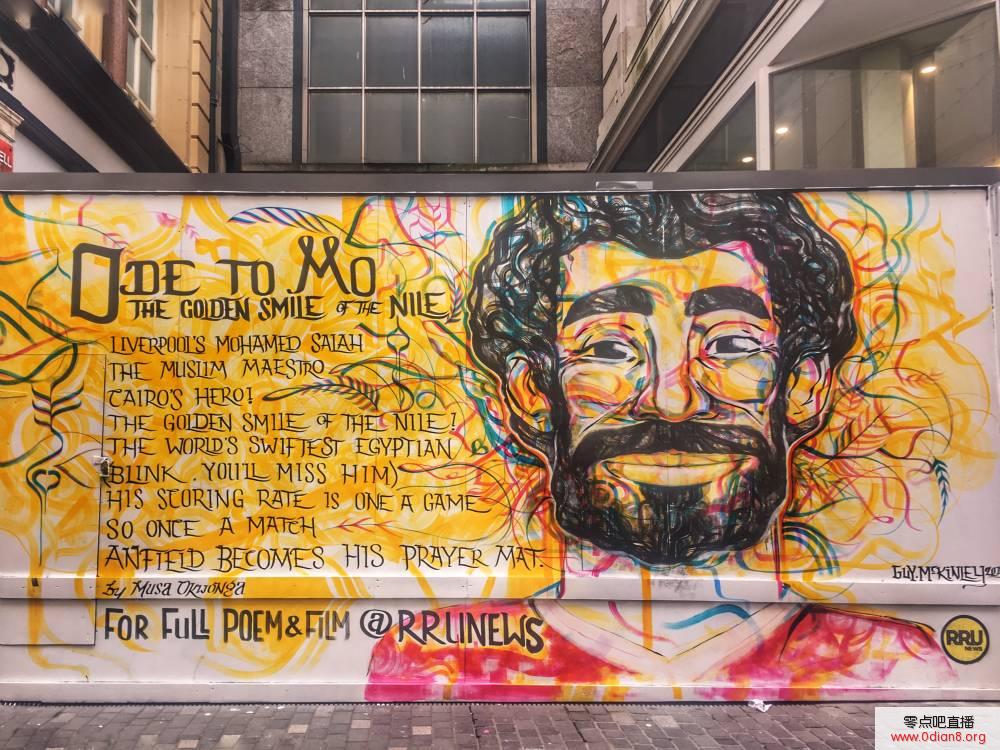 ODE TO MO
THE GOLDEN SMILE OF THE NILE
LIVERPOOL'S MOHAMED SALAH
THE MUSLIM MAESTRO
CAIRO'S HERO!
THE GOLDEN SMILE OF THE NILE!
THE WORLD'S SWIFTEST EGYPTIAN
BLINK. YOU'LL MISS HIM)
HIS SCORING RATE IS ONE A GAME
SO ONCE A MATCH
ANFIELD BECOMES HIS PRAYER MAT.
by MUSA OKWONGA
FOR FULL POEM & FILM @RRUNEWS
GUY.MCKINLEY
RRU
NEWS
零点吧直播
www.0dian8.org